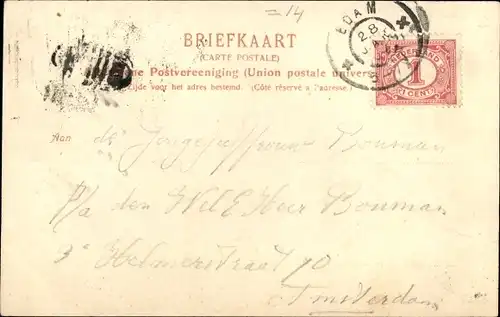 = 14
EDAM
28
BRIEFKAART
(CARTE POSTALE)
Postvereeniging (Union postale univers
Zijde voor het adres bestemd. (Côté réservé à l'adresse.)
NEDERLAND
1
CENT
Aan de Jongejuffrouw Bouman
p/a den WelE Heer Bouman
Helmerstraat 70
Amsterdam